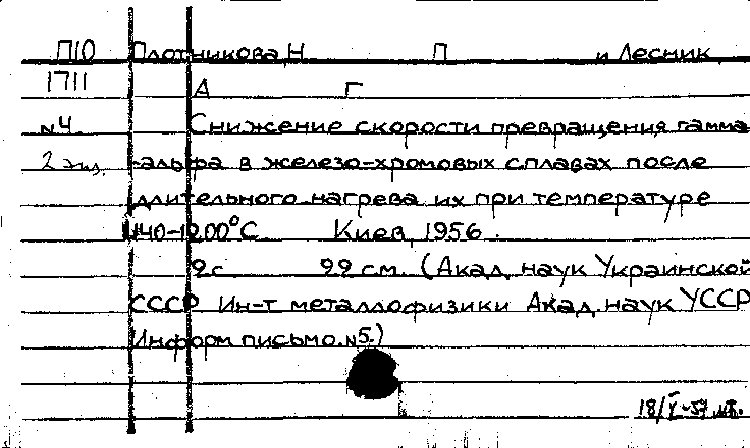 П10 Плотникова, Н П и Лесник,
1711 А Г
N4. Снижение скорости превращения гамма
2 экз. -альфа в железо-хромовых сплавах после
длительного нагрева их при температуре
1140-1200°С Киев, 1956.
2с 22 см. (Акад. наук Украинской
СССР Ин-т металлофизики Акад. наук УССР
Информ письмо. N5.)
18/V-57